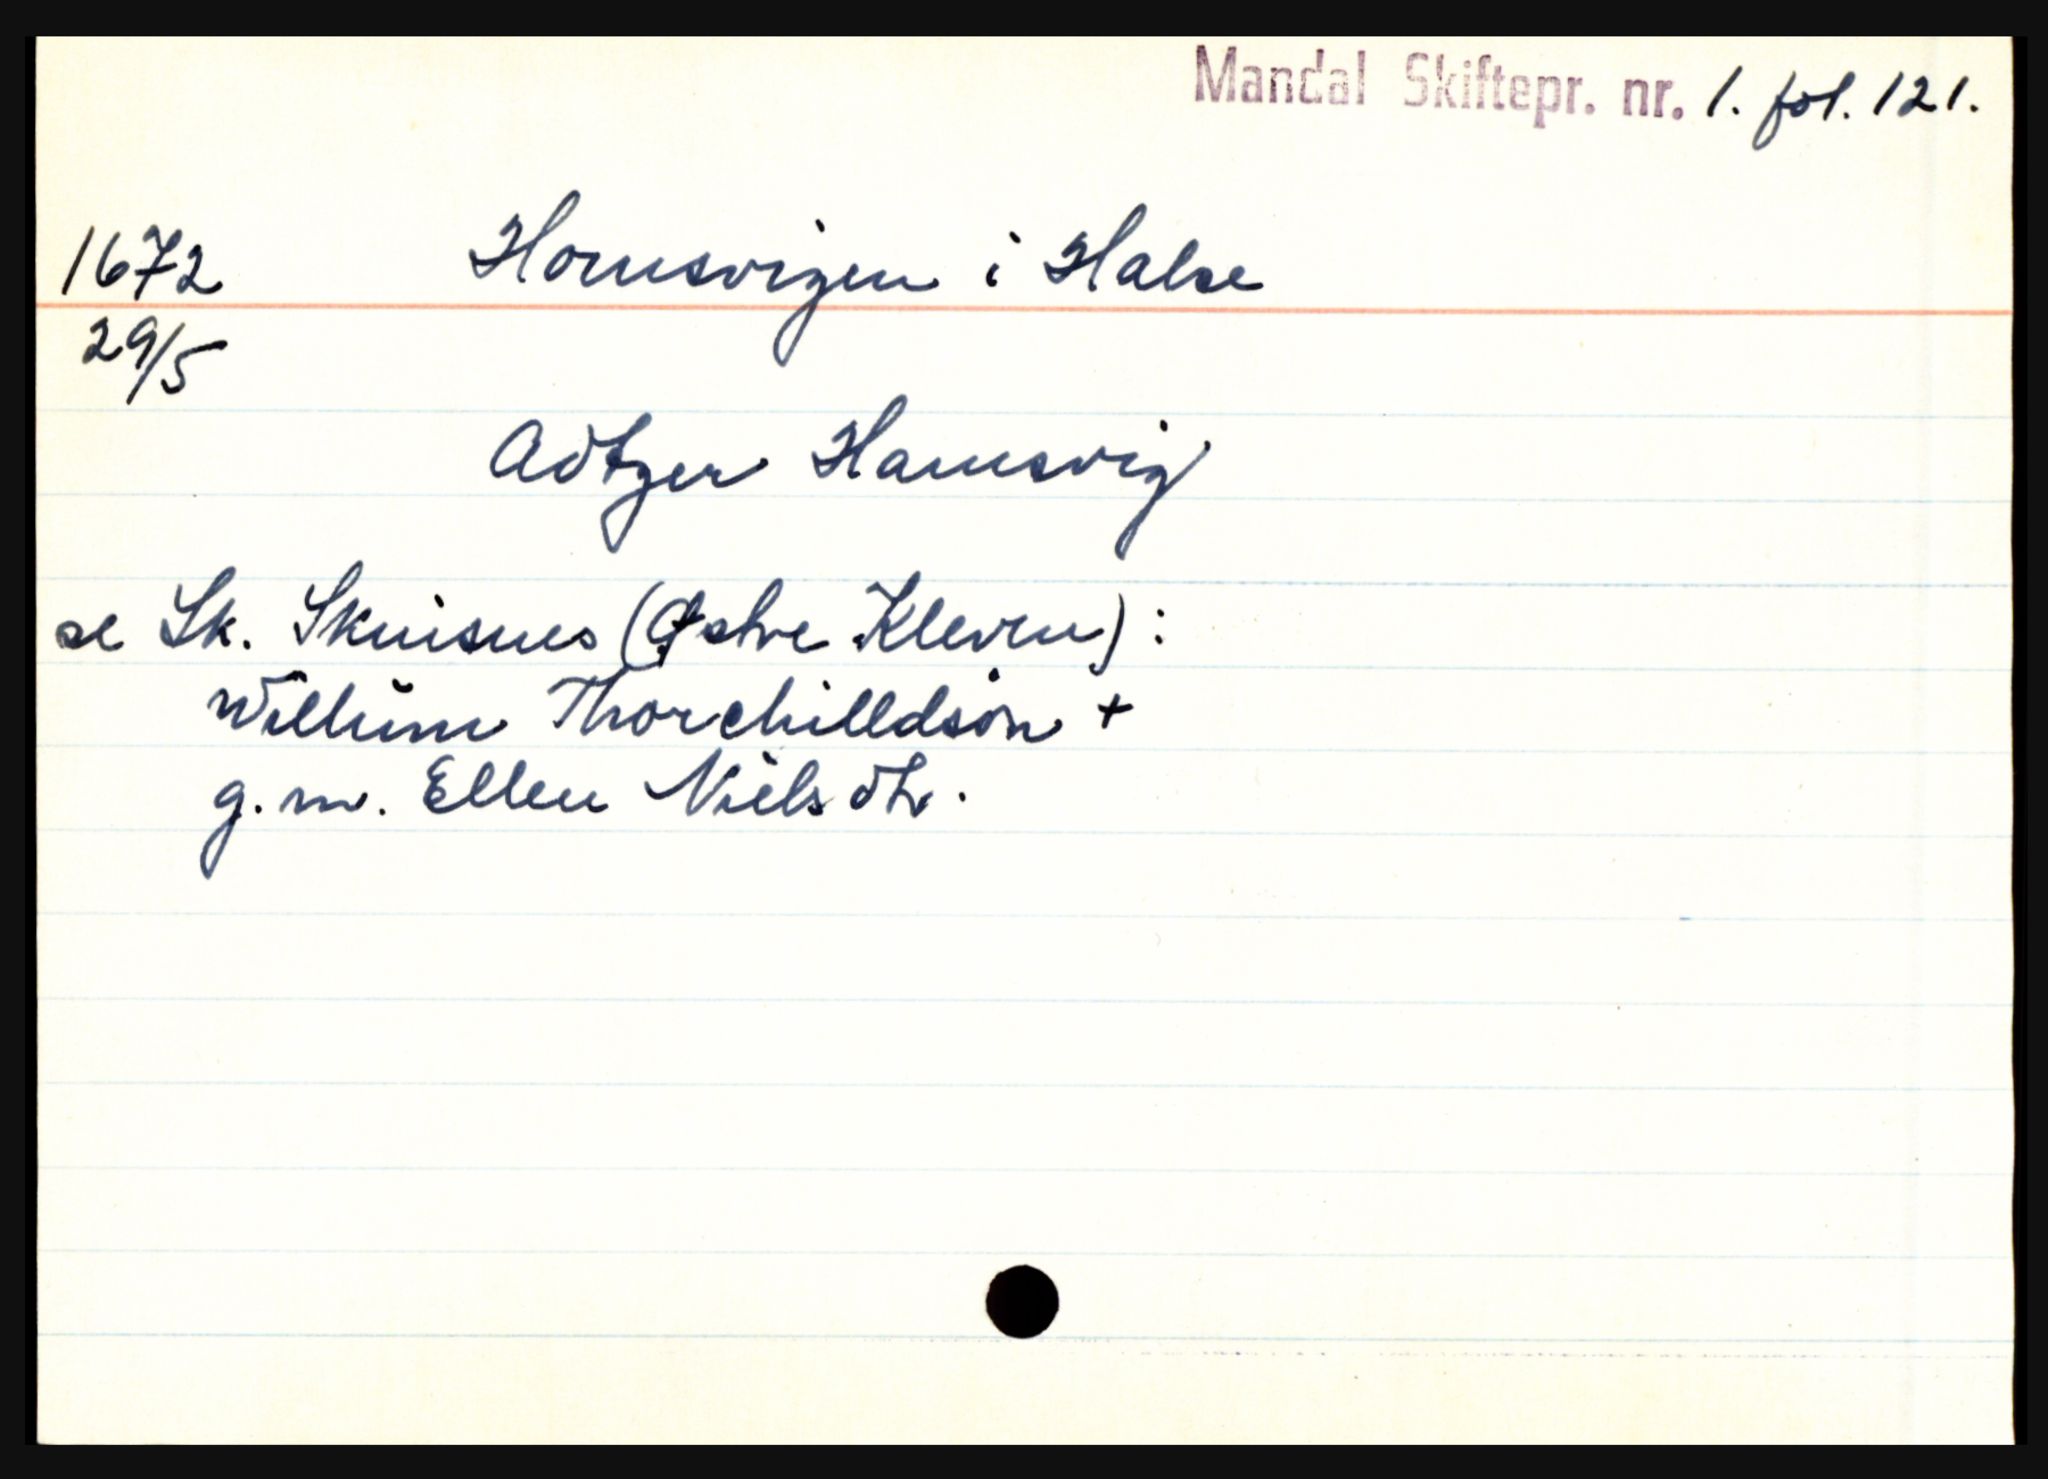 Mandal Skiftepr. nr. 1. fol. 121.
1672 Homsvigen i Halse
29/5
Adtzer Hamsvig
se Sk. Skuisnes (Østre Kleven):
Willum Thorchilldsøn +
g.m. Ellen Nielsdtr.